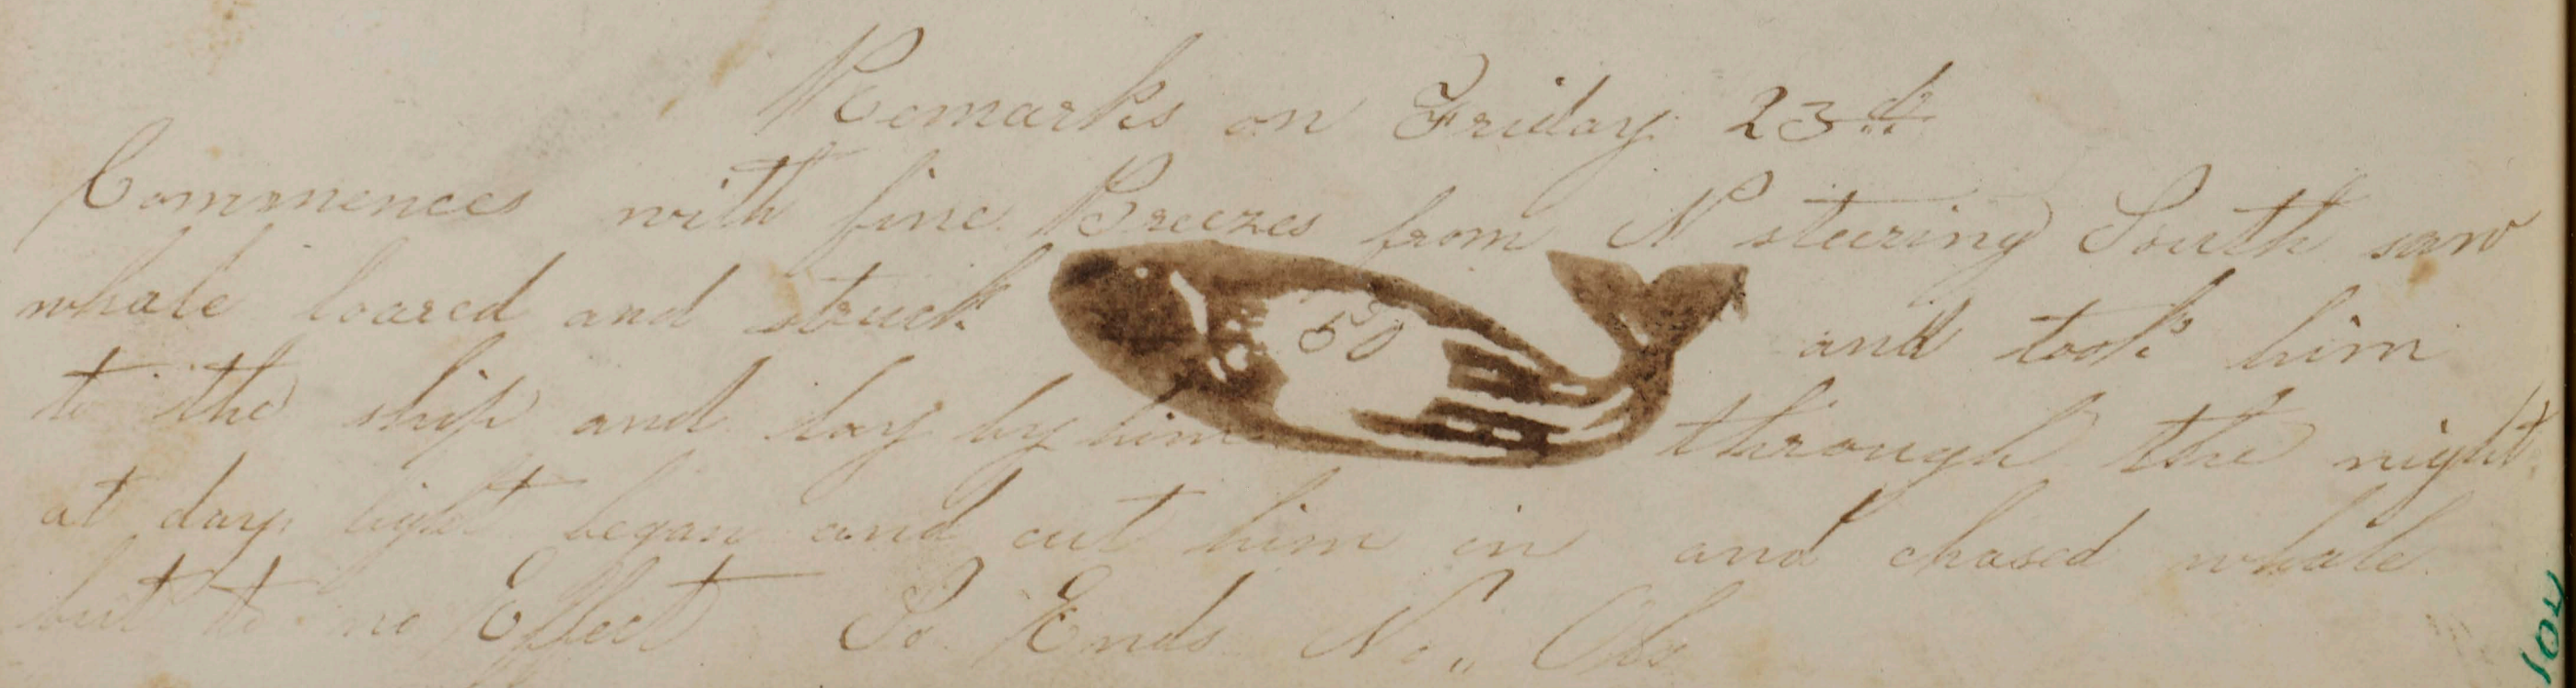 Remarks on Friday 23d
Commences with fine Breezes from N steering South saw
whale loared and struck 50 and took him
to the ship and lay by him through the night
at day light began and cut him in and chased whale
but to no Effect So Ends No,, Obs
104